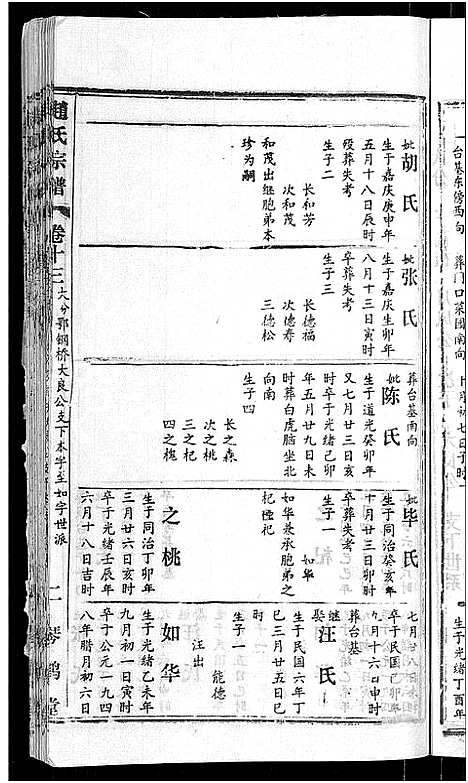 台基东傍西向 葬门口菜园南向
生于光绪丁酉年
妣胡氏
生于嘉庆庚申年
五月十八日辰时
殁葬失考
生子二
长和芳
次和茂
和茂出继胞弟本
珍为嗣
妣张氏
生于嘉庆生卯年
八月十三日寅时
卒葬失考
生子三
长德福
次德寿
三德松
葬台基南向
妣陈氏
生于道光癸卯年
又七月廿三日亥
时卒于光绪己卯
年五月廿九日未
时葬白虎脑坐北
向南
生子四
长之森
次之桃
三之杞
四之槐
妣毕氏
生于同治癸亥年
十月廿三日卯时
卒葬失考
生子一
如华
如华兼承胞弟之
杞桠祀
之桃
生于同治丁卯年
三月廿六日亥时
卒于光绪壬辰年
六月十八日吉时
七月廿八日丑时
卒于民国己卯年
九月十六日申时
葬台基
继娶汪氏
生于民国六年丁
巳三月廿五日巳
时
生子一
能德
汪出
如华
生于光绪乙未年
九月初一日寅时
卒于公元一九四
八年腊月初六日
赵氏宗谱
卷十三
大分鄂钢桥大良公支下本字至如字世派
二
琴鹤堂